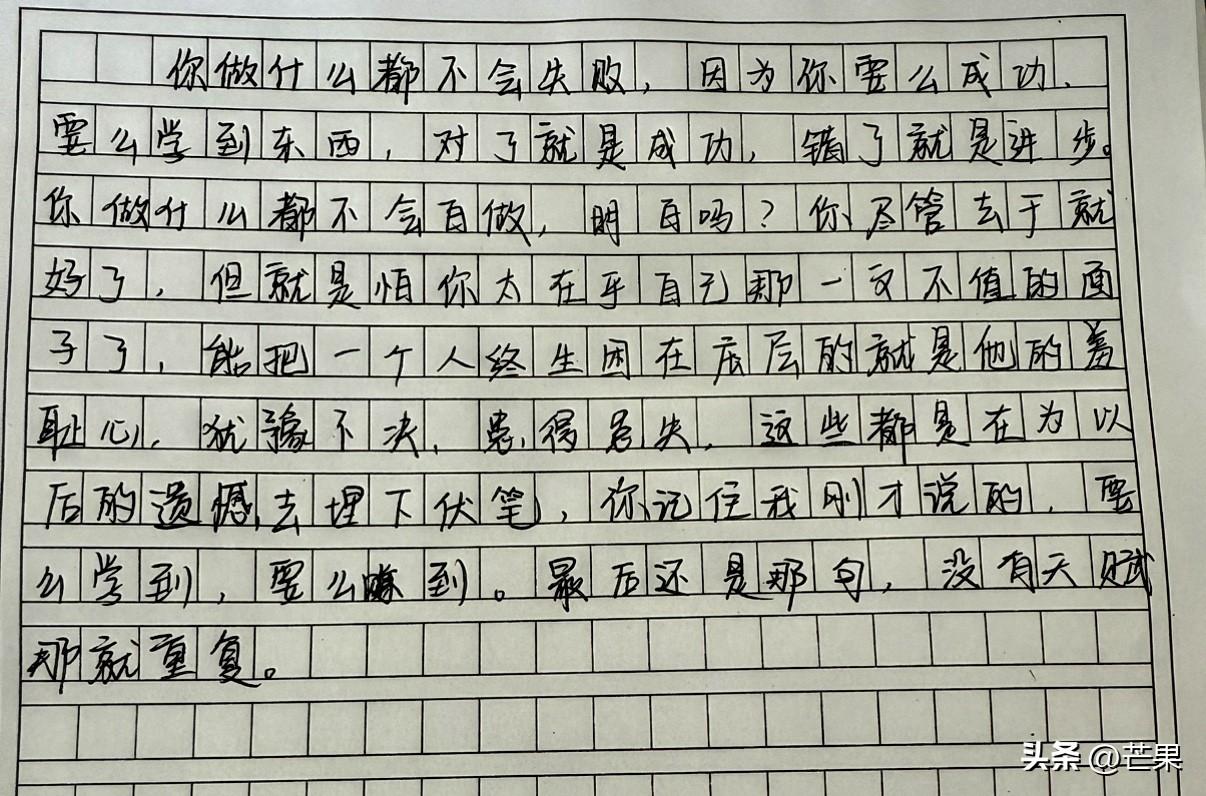 你做什么都不会失败，因为你要么成功、
要么学到东西，对了就是成功，错了就是进步。
你做什么都不会白做，明白吗？你尽管去干就
好了，但就是怕你太在乎自己那一文不值的面
子了，能把一个人终生困在底层的就是他的羞
耻心，犹豫不决、患得患失，这些都是在为以
后的遗憾去埋下伏笔，你记住我刚才说的，要
么学到，要么赚到。最后还是那句，没有天赋
那就重复。
头条@芒果